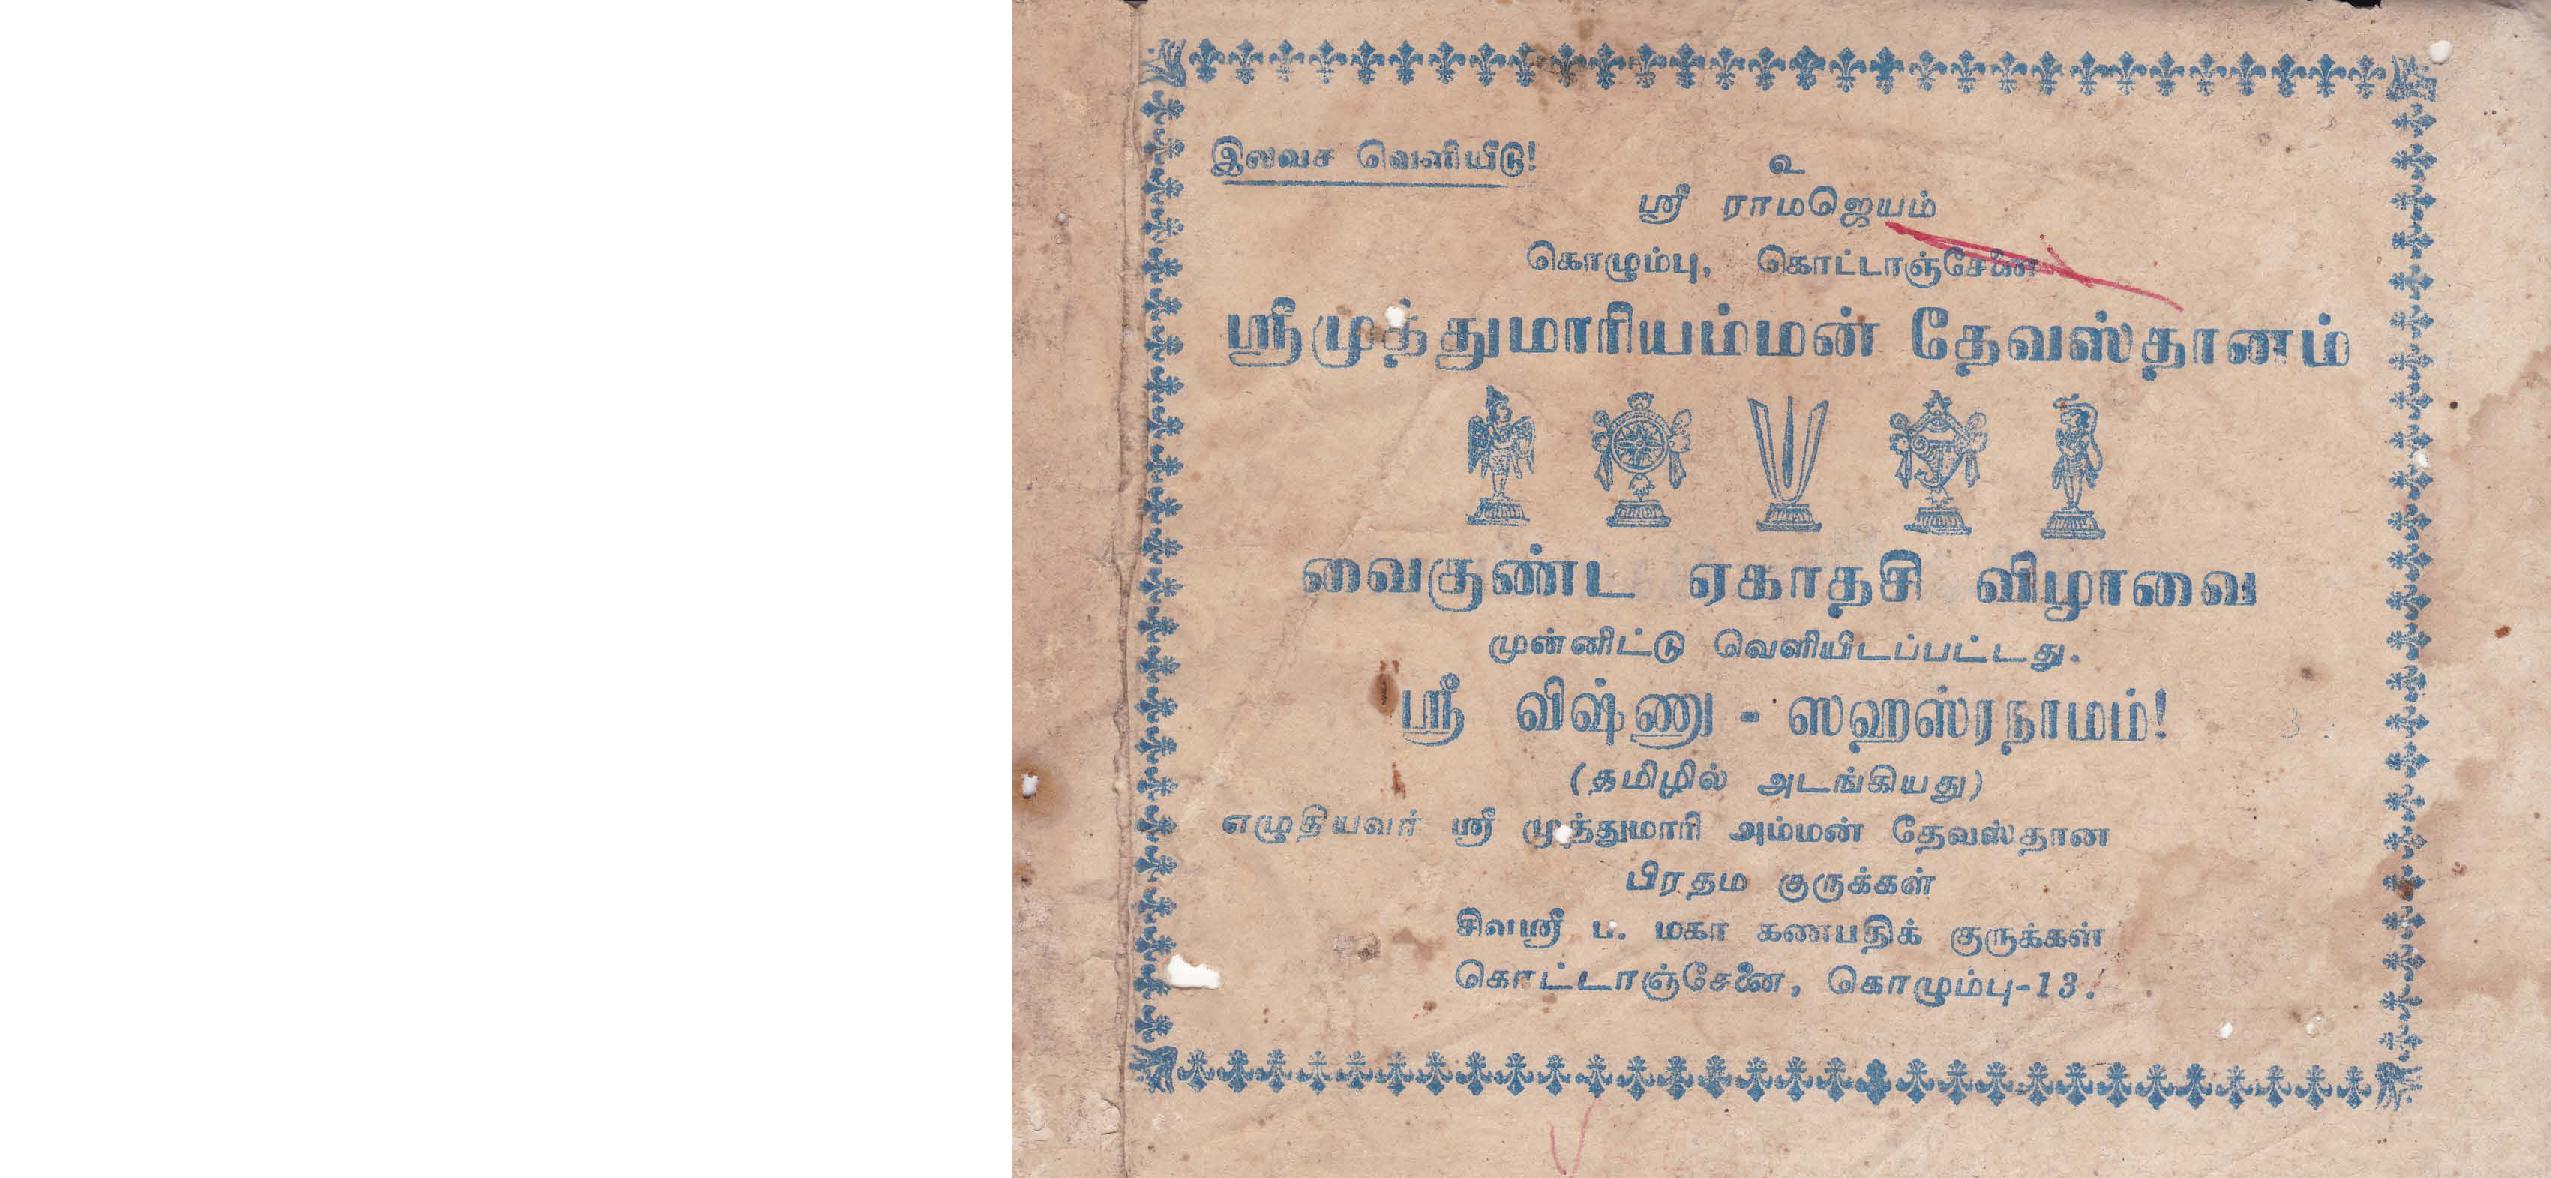 இலவச வெளியீடு!
உ
ஸ்ரீ ராமஜெயம்
கொழும்பு, கொட்டாஞ்சேனை
ஸ்ரீமுத்துமாரியம்மன் தேவஸ்தானம்
வைகுண்ட ஏகாதசி விழாவை
முன்னிட்டு வெளியிடப்பட்டது.
ஸ்ரீ விஷ்ணு - ஸஹஸ்ரநாமம்!
(தமிழில் அடங்கியது)
எழுதியவர் ஸ்ரீ முத்துமாரி அம்மன் தேவஸ்தான
பிரதம குருக்கள்
சிவஸ்ரீ ப. மகா கணபதிக் குருக்கள்
கொட்டாஞ்சேனை, கொழும்பு-13.